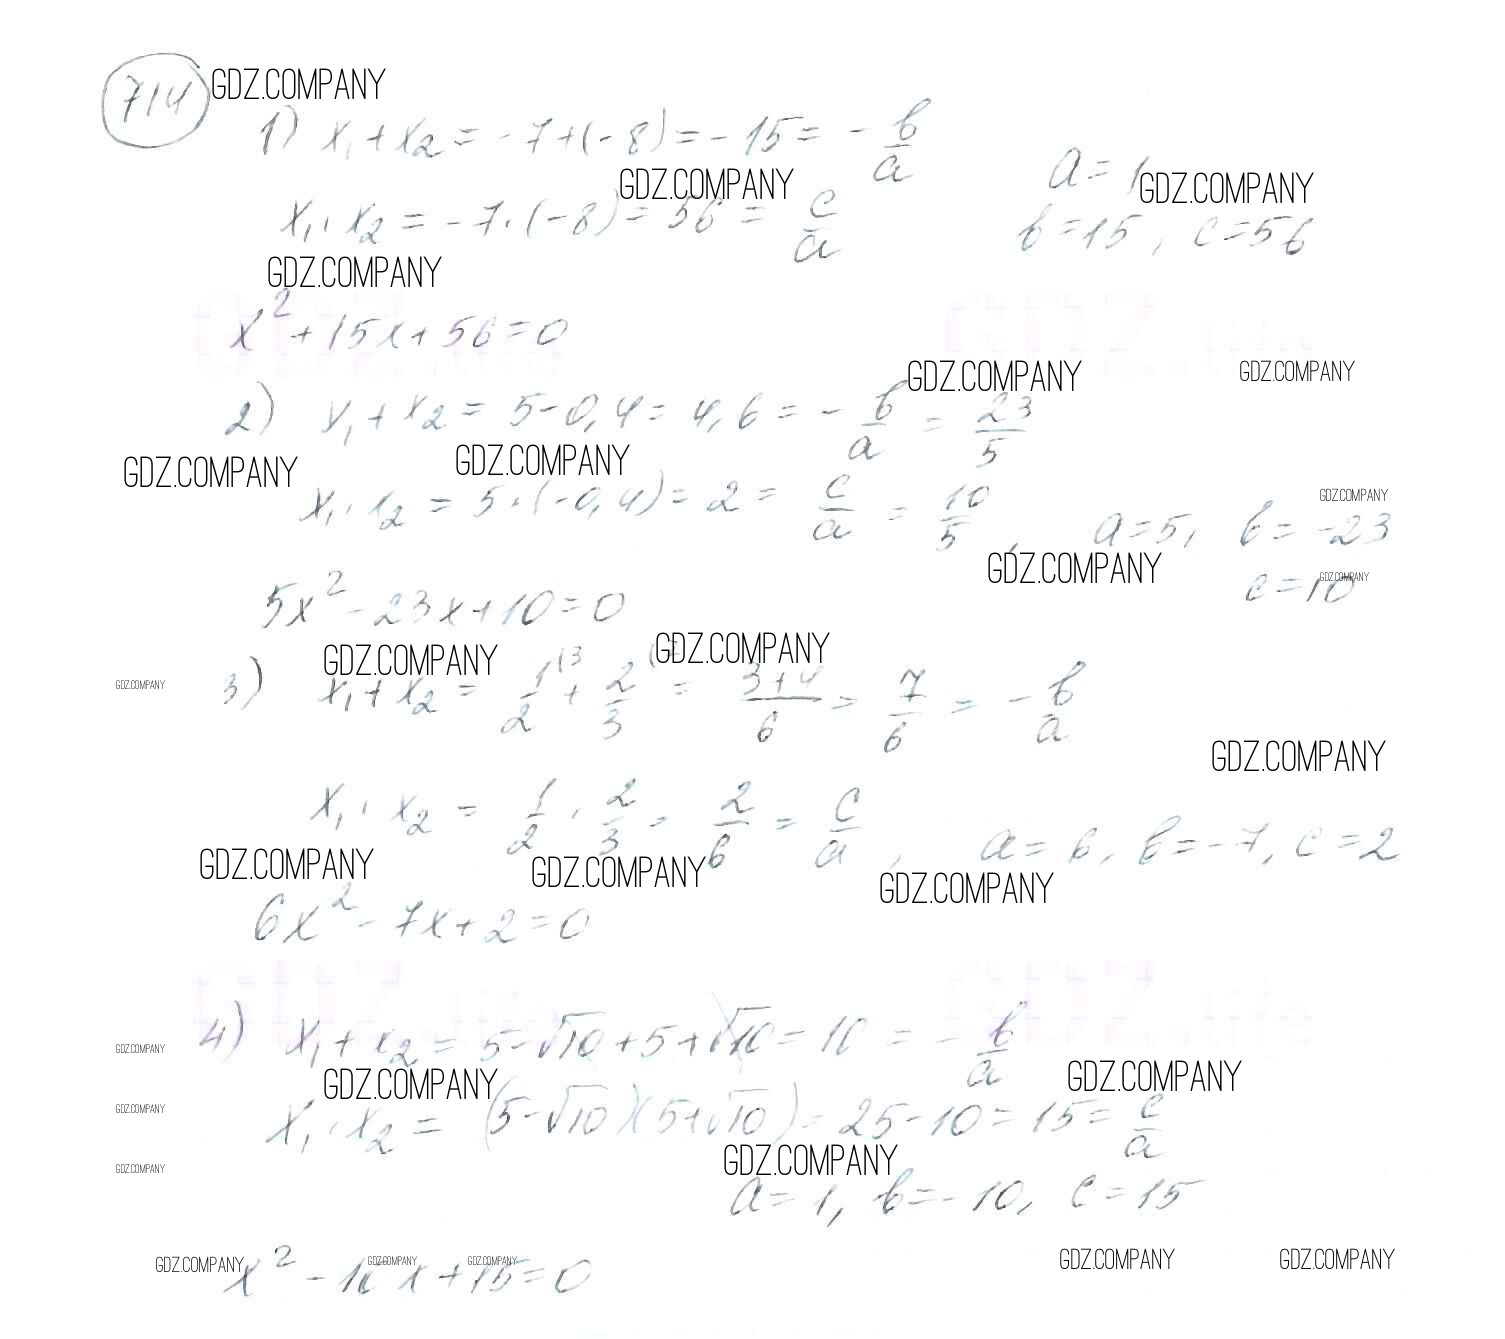 714 GDZ.COMPANY
1) x₁+x₂ = -7+(-8) = -15 = -b/a
a=1
GDZ.COMPANY GDZ.COMPANY
x₁·x₂ = -7·(-8) = 56 = c/a
b=15, c=56
GDZ.COMPANY
x²+15x+56=0
GDZ.life GDZ.life
GDZ.COMPANY GDZ.COMPANY
2) x₁+x₂ = 5-0,4 = 4,6 = -b/a = 23/5
GDZ.COMPANY GDZ.COMPANY
x₁·x₂ = 5·(-0,4) = 2 = c/a = 10/5, a=5, b=-23
GDZ.COMPANY
GDZ.COMPANY GDZ.COMPANY
c=10
5x²-23x+10=0
GDZ.COMPANY GDZ.COMPANY
GDZ.COMPANY
3) x₁+x₂ = 1/2 (3 + 2/3 (2 = (3+4)/6 = 7/6 = -b/a
GDZ.COMPANY
x₁·x₂ = 1/2 · 2/3 = 2/6 = c/a, a=6, b=-7, c=2
GDZ.COMPANY GDZ.COMPANY GDZ.COMPANY
6x²-7x+2=0
GDZ.life GDZ.life
GDZ.COMPANY
4) x₁+x₂ = 5-√10+5+√10 = 10 = -b/a
GDZ.COMPANY GDZ.COMPANY
GDZ.COMPANY
x₁·x₂ = (5-√10)(5+√10) = 25-10 = 15 = c/a
GDZ.COMPANY GDZ.COMPANY
a=1, b=-10, c=15
GDZ.COMPANY GDZ.COMPANY GDZ.COMPANY GDZ.COMPANY GDZ.COMPANY
x²-10x+15=0